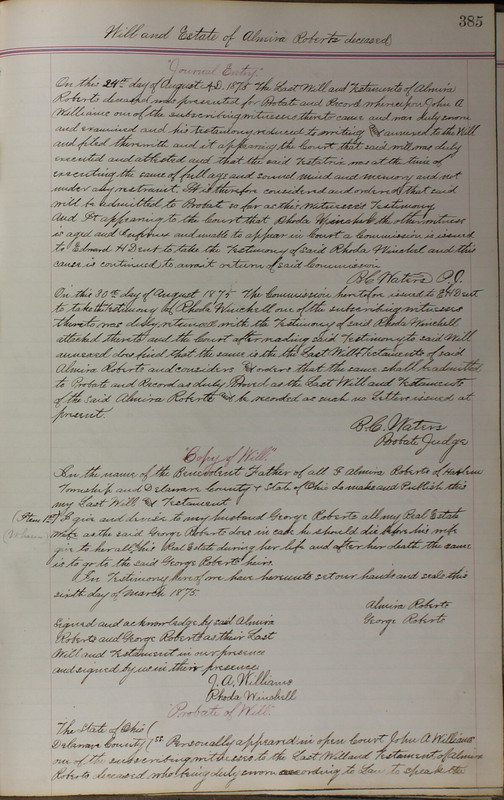 385
Will and Estate of Almira Roberts deceased
"Journal Entry."
On this 24th day of August A.D. 1875 The Last Will and Testaments of Almira
Roberts deceased was presented for Probate and Record whereupon John A
Williams one of the subscribing witnesses thereto came and was duly sworn
and examined and his testimony reduced to writing & annexed to the Will
and filed therewith and it appearing the Court that said will was duly
executed and attested and that the said Testatrix was at the time of
executing the same of full age and sound mind and memory and not
under any restraint. It is therefore considered and ordered that said
will be admitted to Probate so far as this Witnesses Testimony
And It appearing to the Court that Rhoda Winchell the other witness
is aged and and unable to appear in Court a Commission is issued
to Edward H Dent to take the Testimony of said Rhoda Winchel and this
cause is continued to await return of said Commission
B.C. Waters P.J.
On this 30th day of August 1875 The Commission heretofore issued to E H Dent
to take the Testimony of Rhoda Winchell one of the subscribing witnesses
thereto was duly returned with the Testimony of said Rhoda Winchell
attached thereto and the Court after reading said Testimony to said Will
annexed does find that the same is the the Last Will & Testaments of said
Almira Roberts and considers & orders that the same shall be admitted
to Probate and Record as duly Proved as the Last Will and Testaments
of the said Almira Roberts & be recorded as such no Letters issued at
present
B.C. Waters
Probate Judge
"Copy of Will."
In the name of the Benevolent Father of all I Almira Roberts of Harlem
Township and Delaware County & State of Ohio do make and Publish this
my Last Will & Testament
(Item 1st) I give and devise to my husband George Roberts all my Real Estate
as the said George Roberts does in case he should die before his wife
give to her all this Real Estate during her life and after her death the same
is to go to the said George Roberts heirs
In Testimony hereof we have hereunto set our hands and seals this
sixth day of March 1875
Almira Roberts
George Roberts
Signed and acknowledge by said Almira
Roberts and George Roberts as their Last
Will and Testament in our presence
and signed by us in their presence
J. A. Williams
Rhoda Winchell
"Probate of Will."
The State of Ohio (
Delaware County ( ss. Personally appeared in open Court John A Williams
one of the subscribing witnesses to the Last Will and Testament of Almira
Roberts deceased who being duly sworn according to Law to speak the